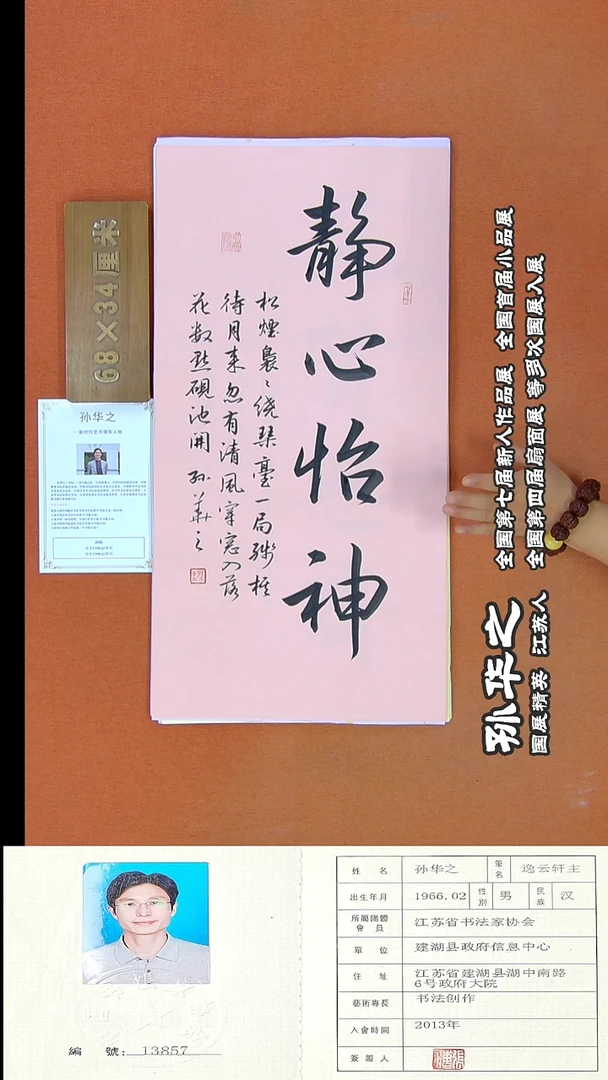 静心怡神
松煙裊々繞琹臺一局殘棋
待月来忽有清風穿窓入落
花数點硯池開 孙華之
68×34厘米
孙华之
孙华之
全国第七届新人作品展 全国首届小品展
国展精英 江苏人
全国第四届扇面展 等多次国展入展
編 號: 13857
姓 名 孙华之 筆名 逸云轩主
出生年月 1966.02 性別 男 民族 汉
所屬團體會員 江苏省书法家协会
單 位 建湖县政府信息中心
住 址 江苏省建湖县湖中南路6号政府大院
藝術專長 书法创作
入會時間 2013年
簽證人